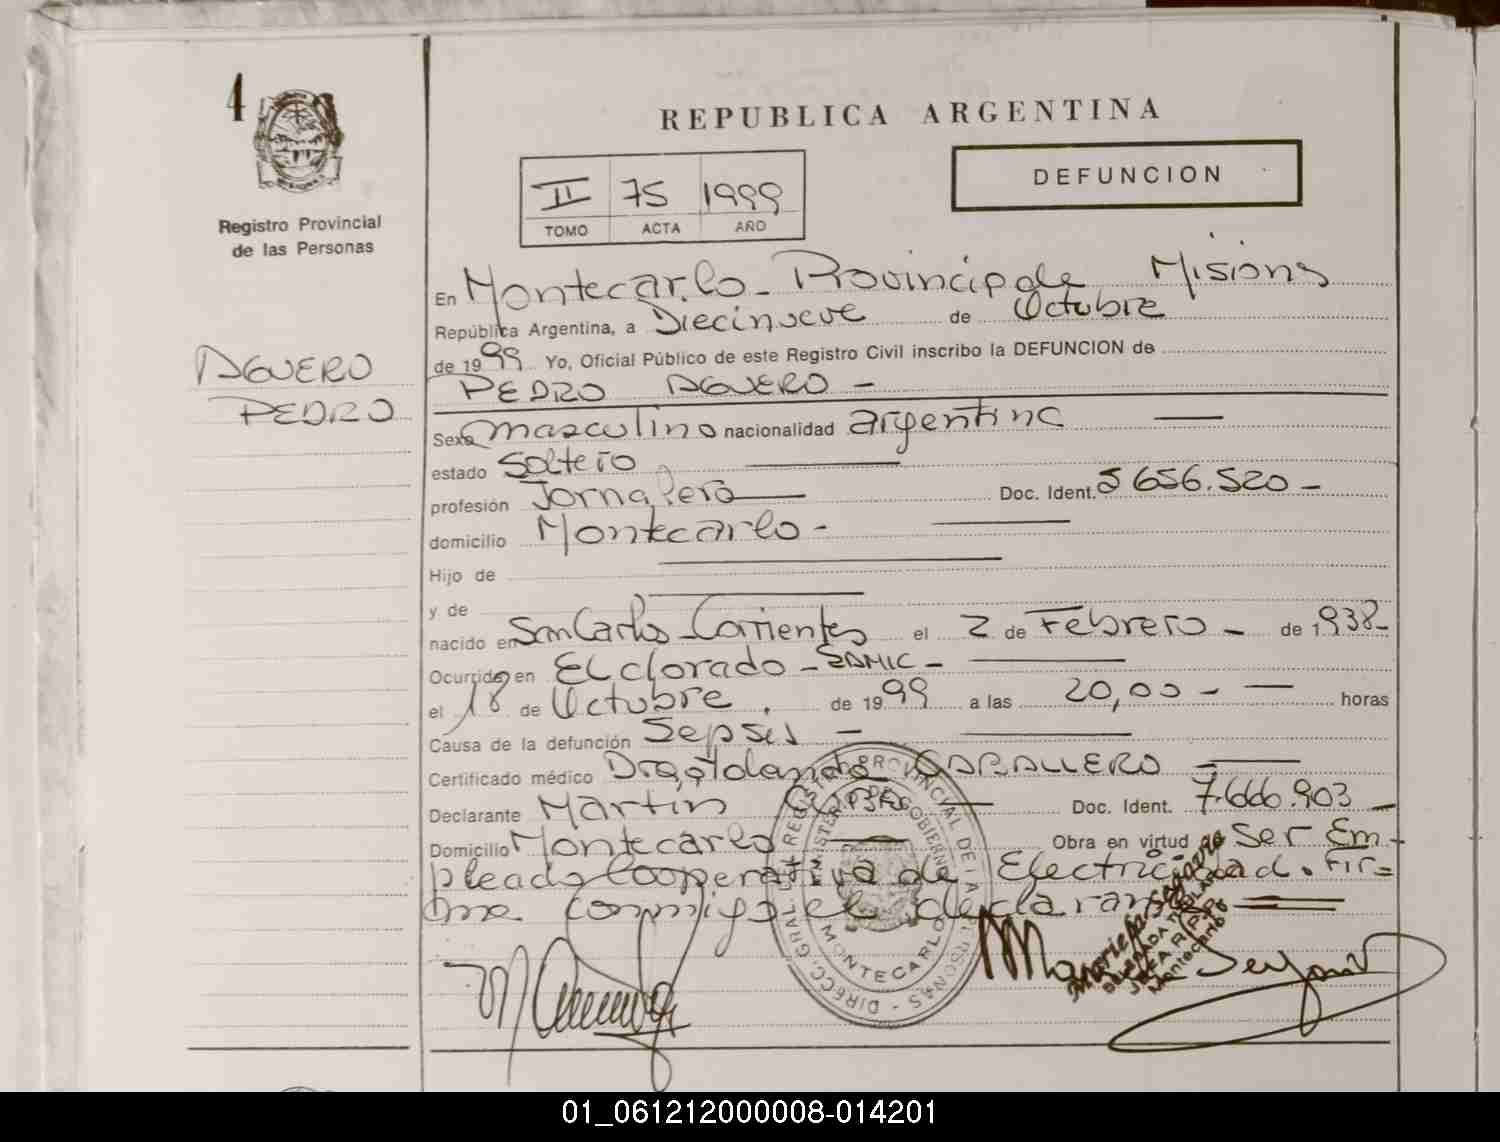 4
REPUBLICA ARGENTINA
DEFUNCION
II 75 1999
TOMO ACTA AÑO
Registro Provincial
de las Personas
AGUERO
PEDRO
En Montecarlo - Provincia de Misiones
República Argentina, a Diecinueve de Octubre
de 1999 Yo, Oficial Público de este Registro Civil inscribo la DEFUNCION de
PEDRO AGUERO -
Sexo masculino nacionalidad argentina
estado Soltero
profesión Jornalero Doc. Ident. 5 656.520 -
domicilio Montecarlo -
Hijo de
y de
nacido en San Carlos - Corrientes el 2 de Febrero - de 1938-
Ocurrido en Eldorado - SAMIC -
el 18 de Octubre de 1999 a las 20,00 - horas
Causa de la defunción Sepsis -
Certificado médico Dra. Yolanda CABALLERO
Declarante Martin Doc. Ident. 7.666.903
Domicilio Montecarlo Obra en virtud de Ser Em-
pleado Cooperativa de Electricidad. Fir=
ma conmigo el declarante
DIRECC. GRAL. REGISTRO PROVINCIAL DE LAS PERSONAS -
MINISTERIO DE GOBIERNO
MONTECARLO
JEFA R.P.P.
Montecarlo
01_061212000008-014201